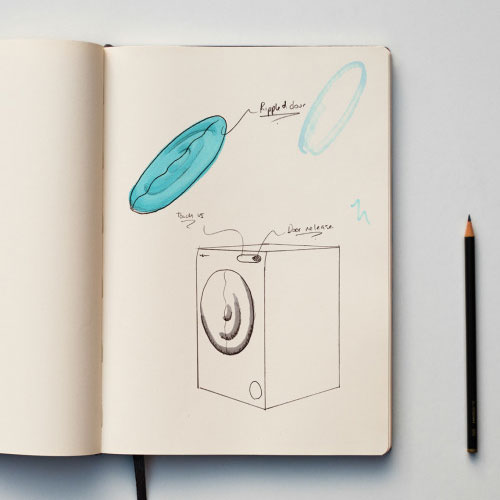 Rippled door
Touch
Door release